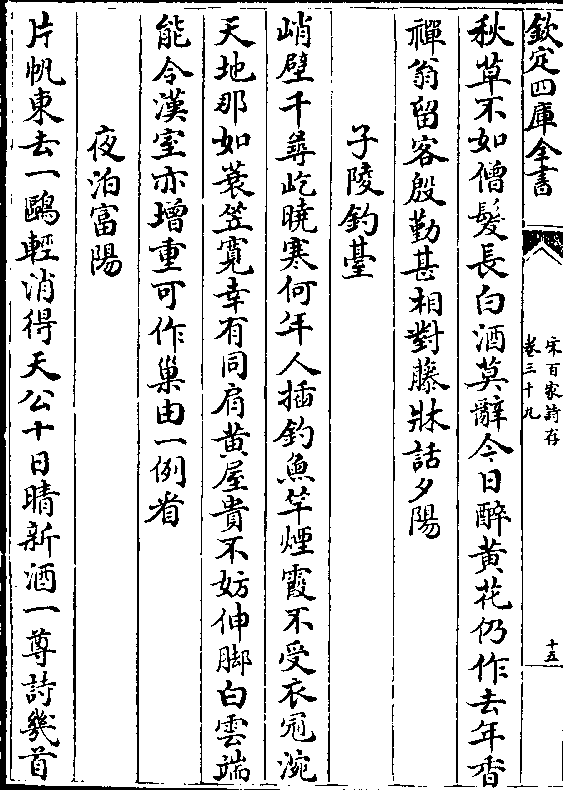 欽定四庫全書
宋百家詩存
卷三十九
十五
秋草不如僧髮長白酒莫辭今日醉黄花仍作去年香
禪翁留客殷勤甚相對藤牀話夕陽
子陵釣臺
峭壁千尋屹曉寒何年人插釣魚竿煙霞不受衣冠涴
天地那如蓑笠寛幸有同肩黄屋貴不妨伸脚白雲端
能令漢室亦增重可作巢由一例看
夜泊富陽
片帆東去一鷗輕消得天公十日晴新酒一尊詩幾首